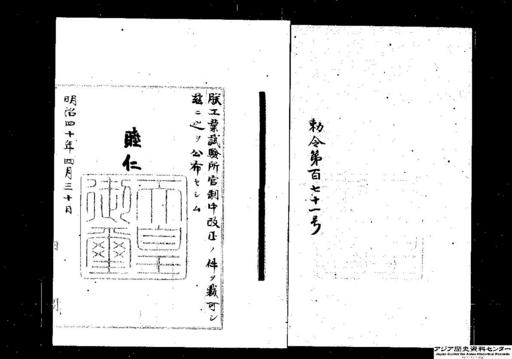 勅令第百七十一号
朕工業試験所官制中改正ノ件ヲ裁可シ
茲ニ之ヲ公布セシム
睦仁
天皇御璽
明治四十年四月三十日
アジア歴史資料センター
Japan Center for Asian Historical Records